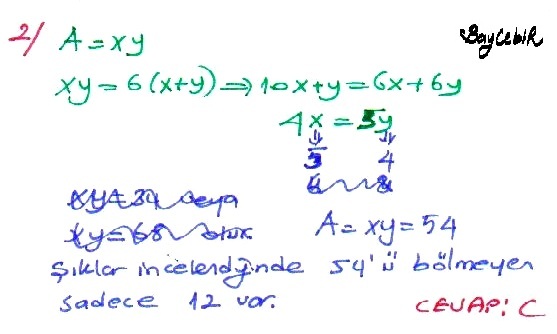 2/ A = xy
BayCebiR
xy = 6(x+y) ⇒ 10x+y = 6x+6y
4x = 5y
⇓ ⇓
5 4
A = xy = 54
Şıklar incelendiğinde 54'ü bölmeyen
sadece 12 var.
CEVAP: C